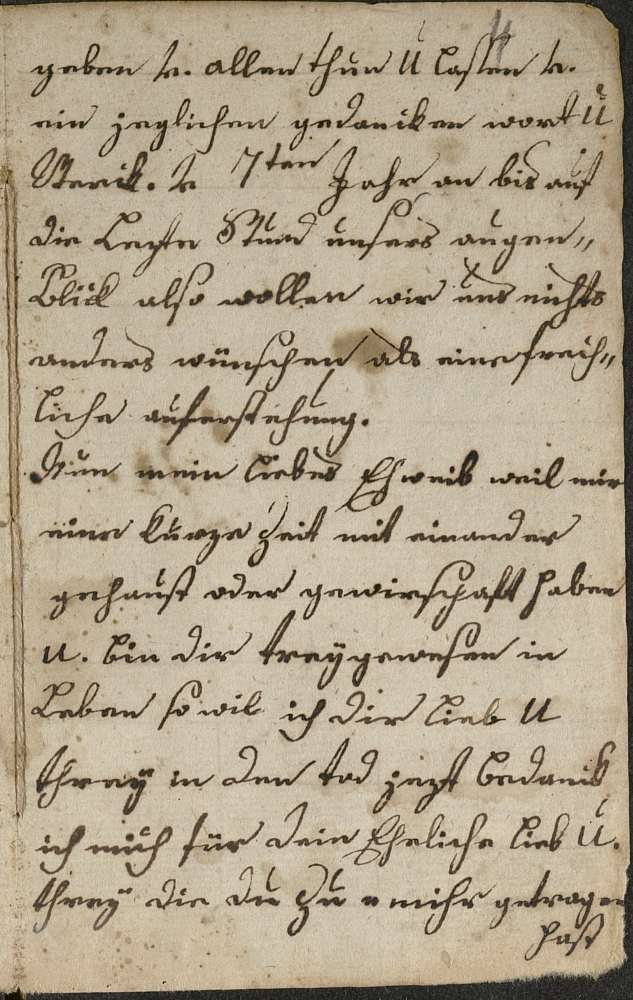 geben v. allen thun U lassen v.
ein jeglichen gedancken wort U
Werck. v 7ten Jahr an bis auf
die Lezte Stund unsers augen„
Blick also wollen wir uns nichts
anders wünschen als eine freih„
liche auferstehung.
Nun mein liebes Ehweib weil mir
eine kurze Zeit mit einander
gehaust oder gewirschaft haben
u. bin dir trey gewesen in
Leben so wil ich dir lieb U
threy in den tod jezt bedanck
ich mich für dein Eheliche lieb U.
threy die du zu mihr getragen
hast